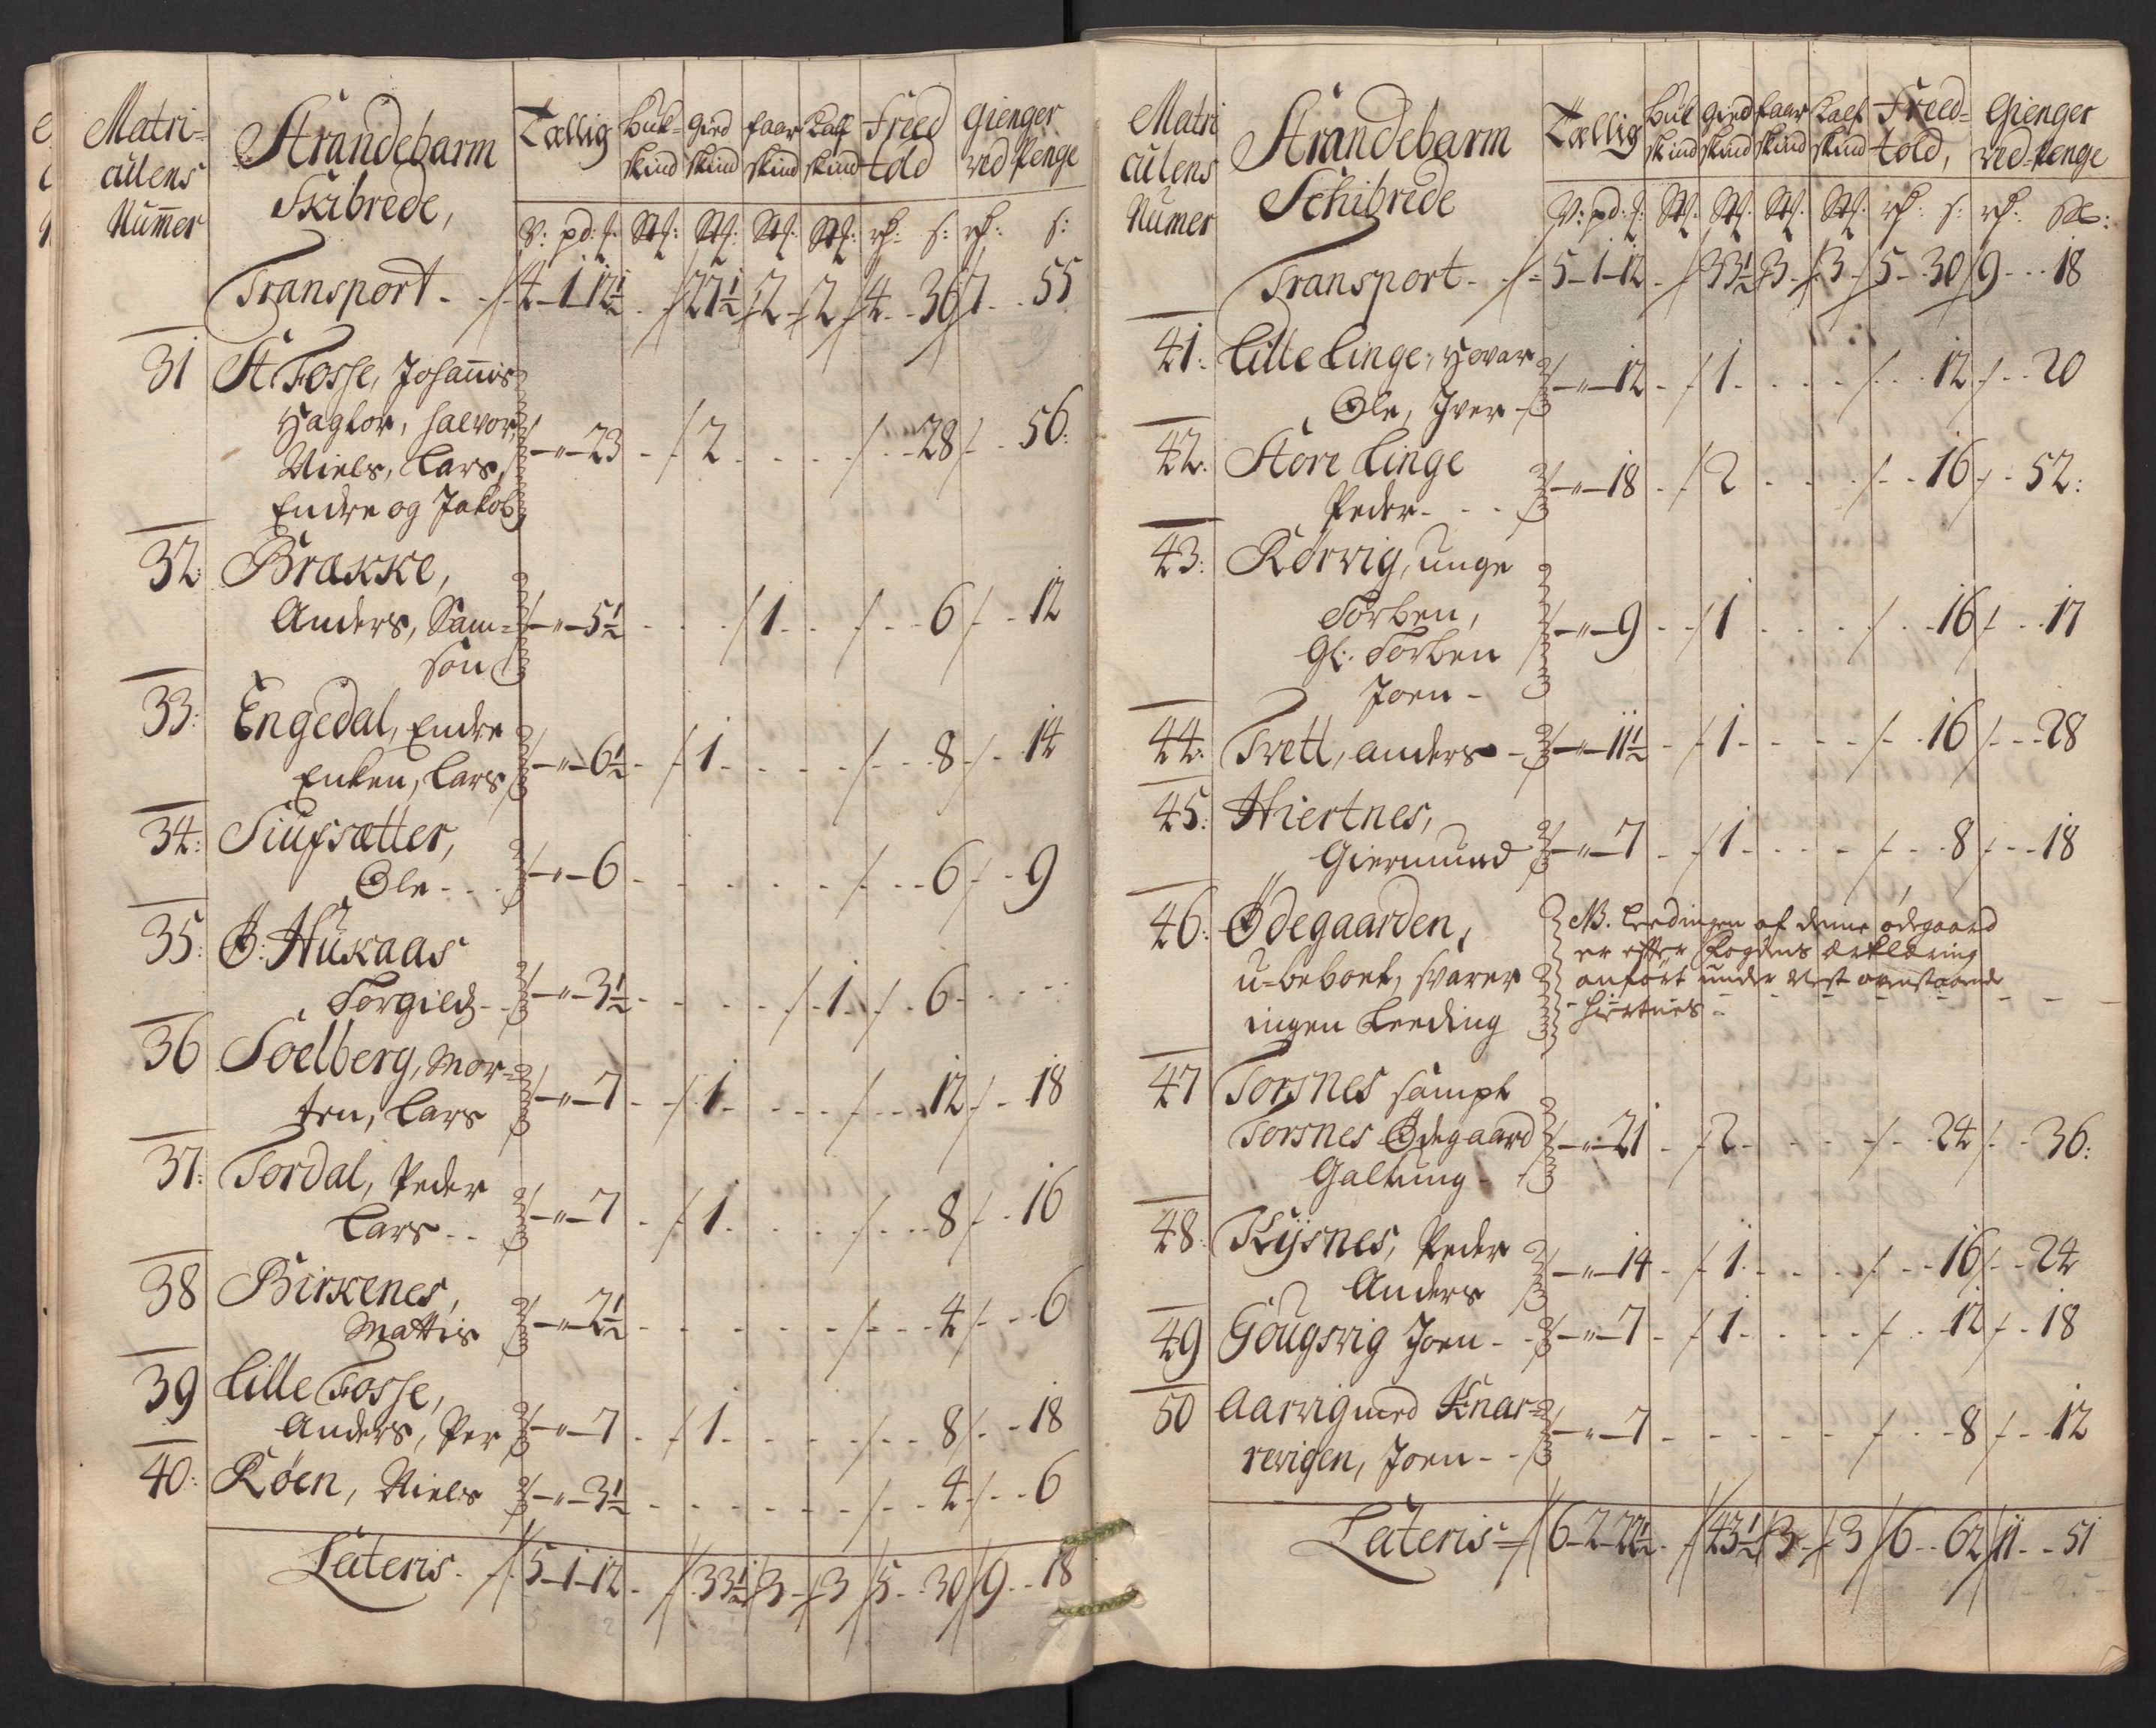 Matri=
culens
Numer
Strandebarm
Skibrede,
Tællig
Buk=
skind
Gied
skind
faar
skind
Kalf
skind
Freed
told
Gienger
ved Penge
V: pd: £: St: St: St: St: rd: s: rd: s:
Transport - 4-1-12½ 27½ 2 2 4 - 36 7 - 55
31 St. Fosse, Johannis
Haglor, Halvor,
Niels, Lars, - " - 23 2 28 56:
Endre og Jakob
32: Brække,
Anders, Sam= - " - 5½ 1 6 12
son
33: Engedal, Endre
Enken, Lars - " - 6½ 1 8 14
34: Siufsætter,
Ole - - - " - 6 6 9
35: Ø: Hukaas
Torgield - - " - 3½ 1 6
36 Soelberg, Mor=
ten, Lars - " - 7 1 12 18
37: Tordal, Peder
Lars - - - " - 7 1 8 16
38 Birkenes,
Mattis - " - 2½ 4 6
39 Lille Fosse,
Anders, Per - " - 7 1 8 18
40: Røen, Niels - " - 3½ 4 6
Lateris - 5-1-12 33½ 3 3 5 - 30 9 - 18
Matri
culens
Numer
Strandebarm
Schibrede
Tællig
Buk
skind
Gied
skind
faar
skind
Kalf
skind
Freed=
told,
Gienger
ved Penge
V: pd: £: St: St: St: St: rd: s: rd: sk:
Transport - 5-1-12 33½ 3 3 5 - 30 9 - 18
41: Lille Linge, Hovar
Ole, Iver - - " - 12 1 12 20
42: Store Linge
Peder - - - - " - 18 2 16 52:
43: Rørvig, unge
Torben, - " - 9 1 16 17
Gl: Torben
Joen -
44: Tvett, Anders - - " - 11½ 1 16 28
45: Hiertnes,
Giermund - " - 7 1 8 18
46: Ødegaarden,
u-beboet, svarer
ingen Leeding
NB. Leedingen af denne ødegaard
er efter Fogdens erklæring
anført under Næst ovenstaaende
Hiertnes -
47 Torsnes sampt
Torsnes Ødegaard - " - 21 2 24 36:
Galtung -
48: Kysnes, Peder
Anders - " - 14 1 16 24
49 Gougsvig Joen - - " - 7 1 12 18
50 Aarvig med Knar=
revigen, Joen - - - " - 7 8 12
Lateris - 6-2-22½ 43½ 3 3 6 - 62 11 - 51